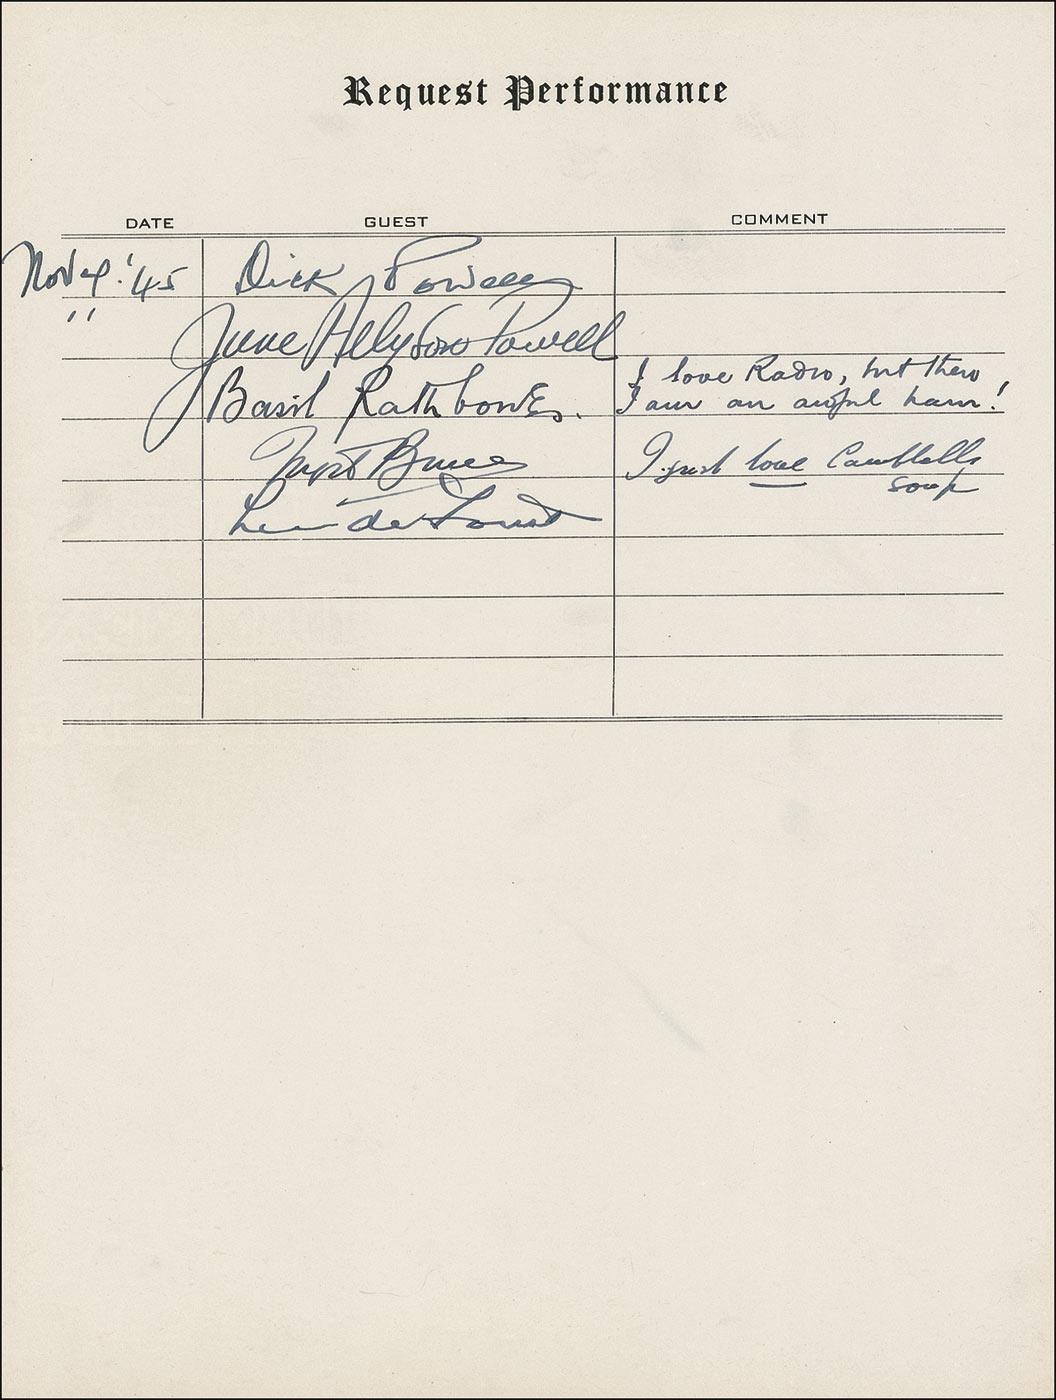 Request Performance
DATE GUEST COMMENT
Nov 4. '45 Dick Powell
" June Allyson Powell
Basil Rathbone. I love Radio, but then
I am an awful ham!
Bruce I just love Cambells
soup
Lee de Forest